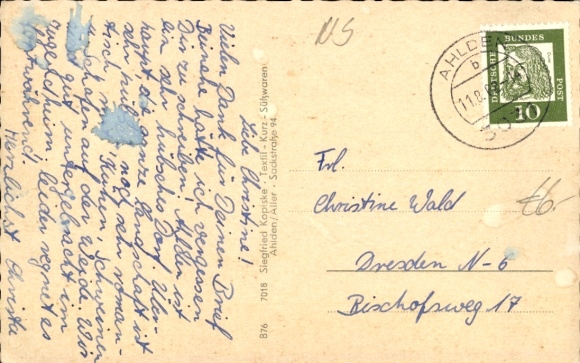 Liebe Christine!
Vielen Dank für Deinen Brief
Beinahe hätte ich vergessen
Dir zu schreiben. Ahlden ist
ein sehr hübsches Dorf. Über-
haupt die ganze Landschaft ist
sehr und sehr roman-
tisch. Kühen, Schweinen
u. Schafen auf der Weide. Wir
gut untergebracht im
leider regnet es
fortwährend!
Herzlichst
B76 7018 Siegfried Kopiske · Textil - Kurz - Süßwaren
Ahlden/Aller · Sackstraße 94
NS
AHLDEN
b
11.8.
DEUTSCHE BUNDES POST
10
Frl.
Christine Wald
Dresden N-6
Bischofsweg 17